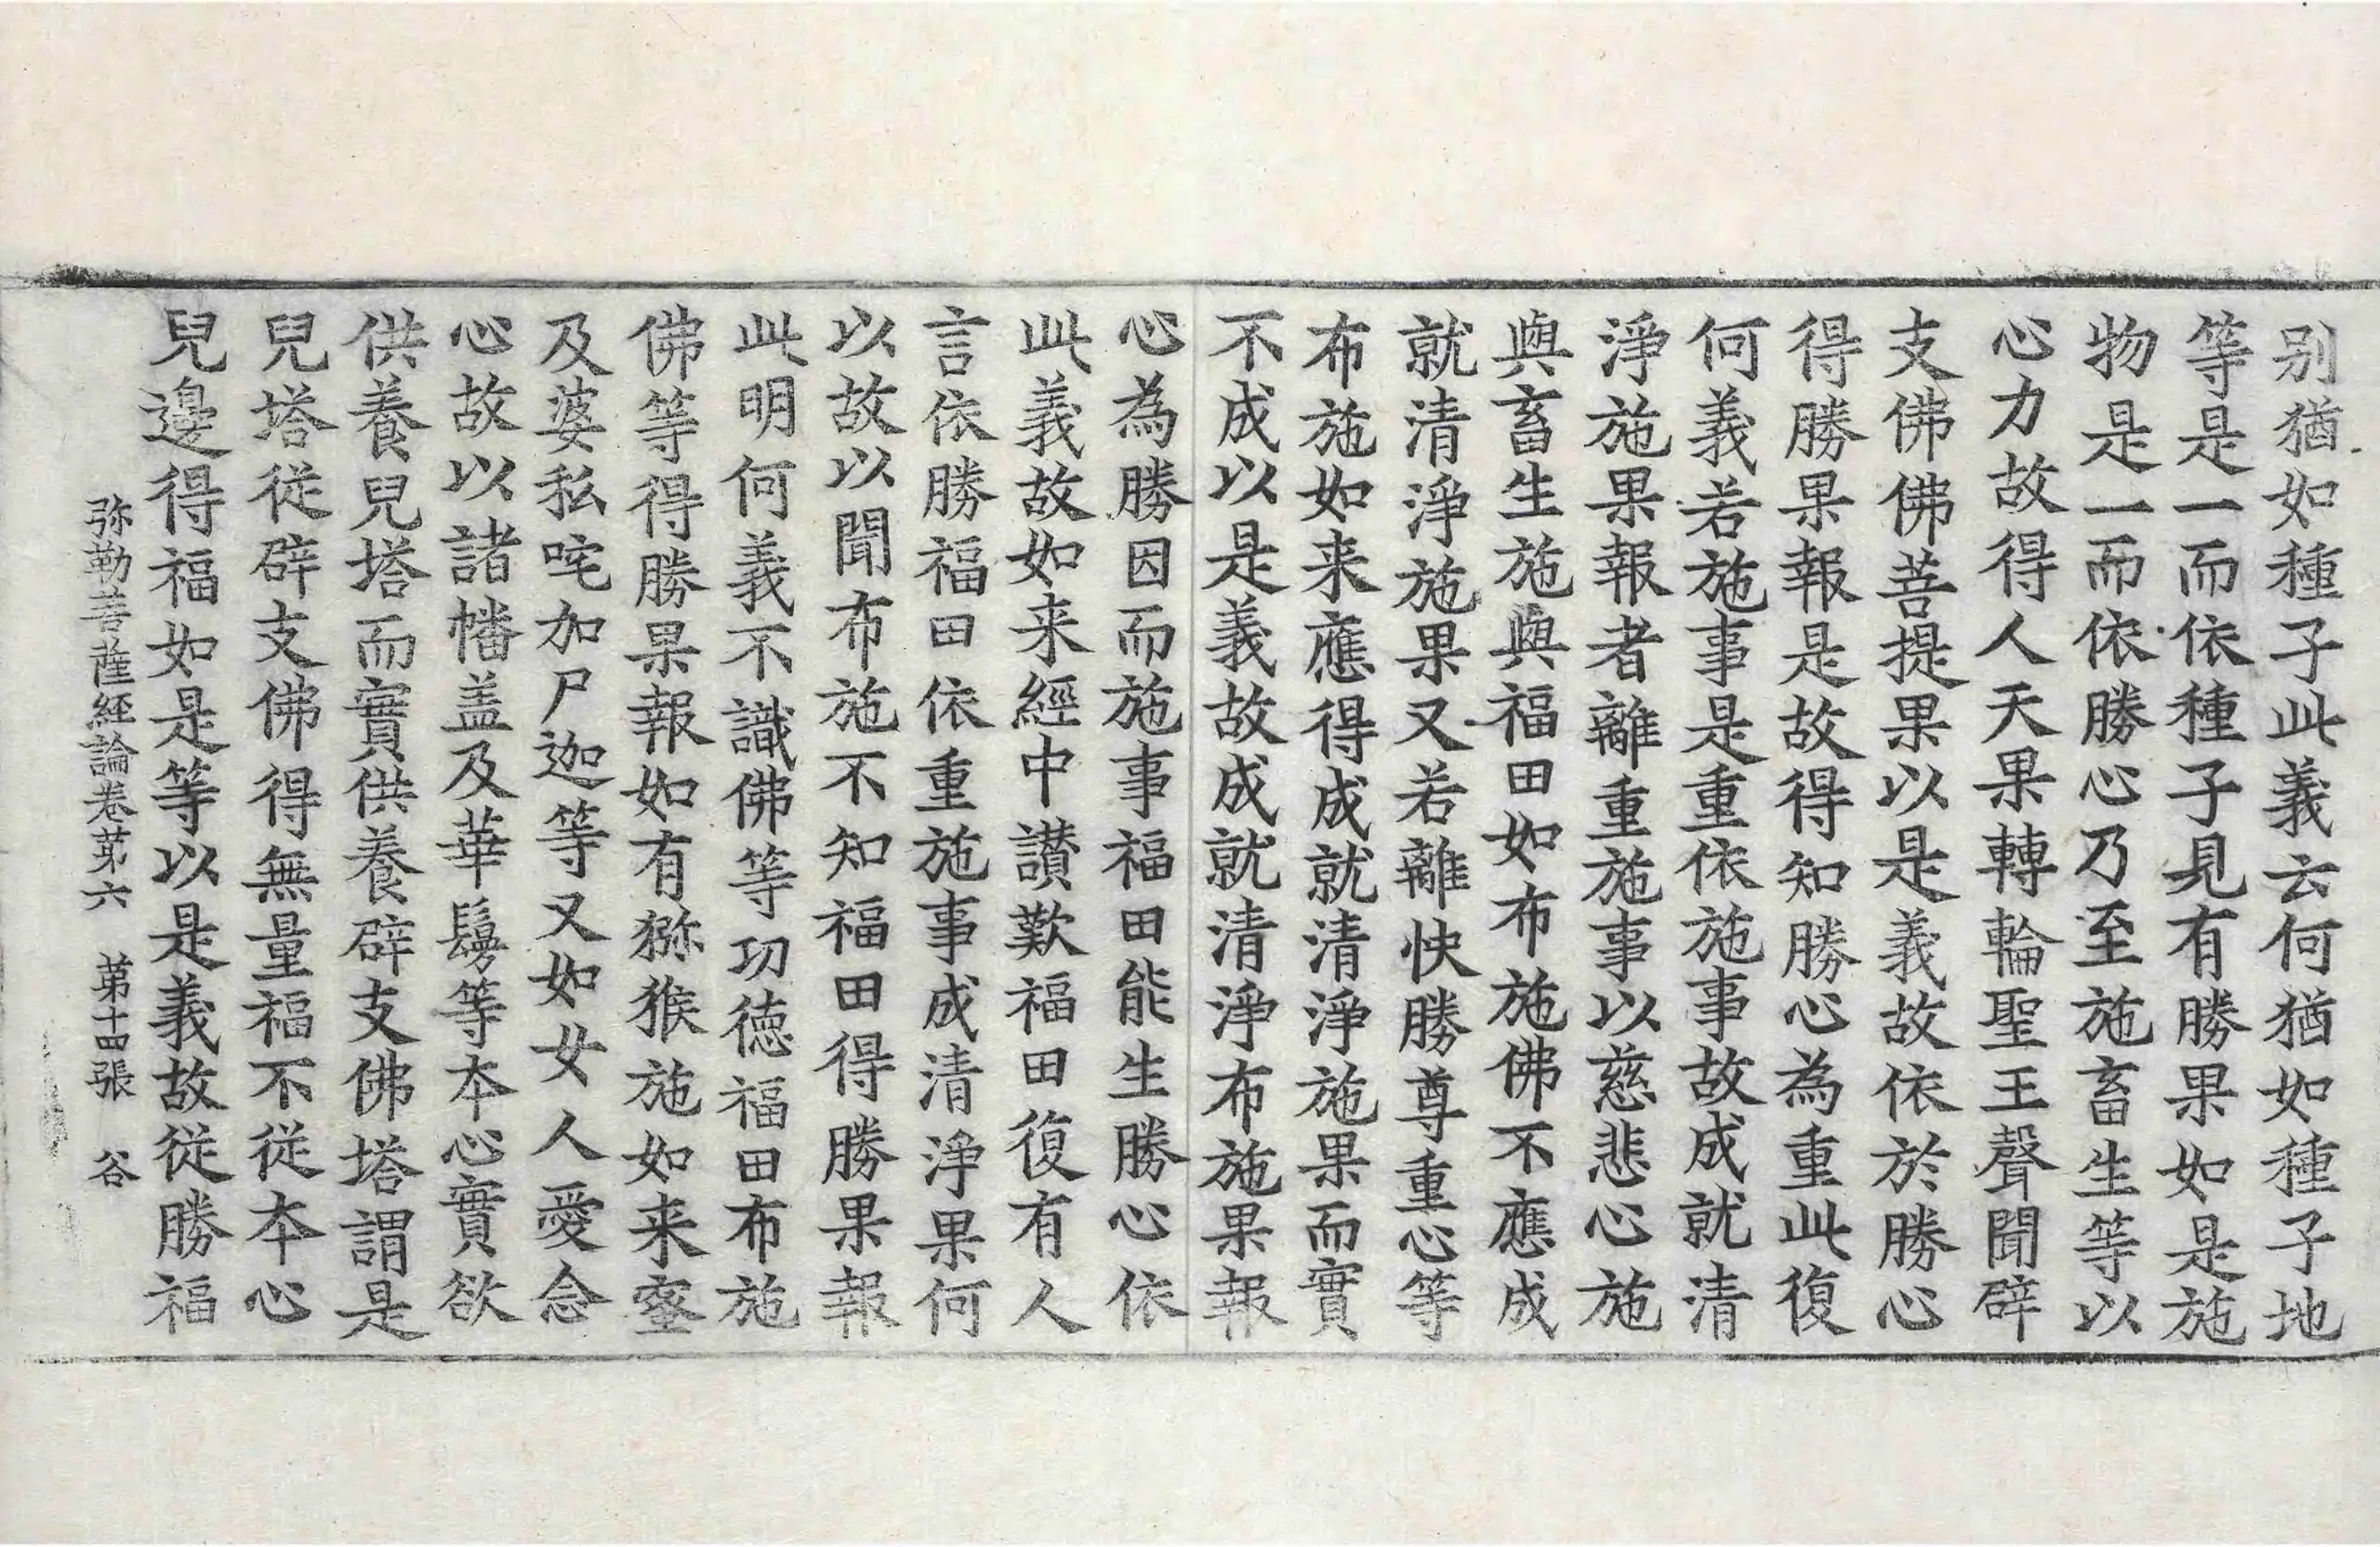 别猶如種子此義云何猶如種子地
等是一而依種子見有勝果如是施
物是一而依勝心乃至施畜生等以
心力故得人天果轉輪聖王聲聞辟
支佛佛菩提果以是義故依於勝心
得勝果報是故得知勝心為重此復
何義若施事是重依施事故成就清
淨施果報者離重施事以慈悲心施
與畜生施與福田如布施佛不應成
就清淨施果又若離快勝尊重心等
布施如来應得成就清淨施果而實
不成以是義故成就清淨布施果報
心為勝因而施事福田能生勝心依
此義故如来經中讃歎福田復有人
言依勝福田依重施事成清淨果何
以故以聞布施不知福田得勝果報
此明何義不識佛等功德福田布施
佛等得勝果報如有猕猴施如来蜜
及婆私咤加尸迦等又如女人愛念
心故以諸幡盖及華鬘等夲心實欲
供養兒塔而實供養辟支佛塔謂是
兒塔従辟支佛得無量福不従夲心
兒邊得福如是等以是義故従勝福
弥勒菩薩經論卷苐六　苐十四張　谷